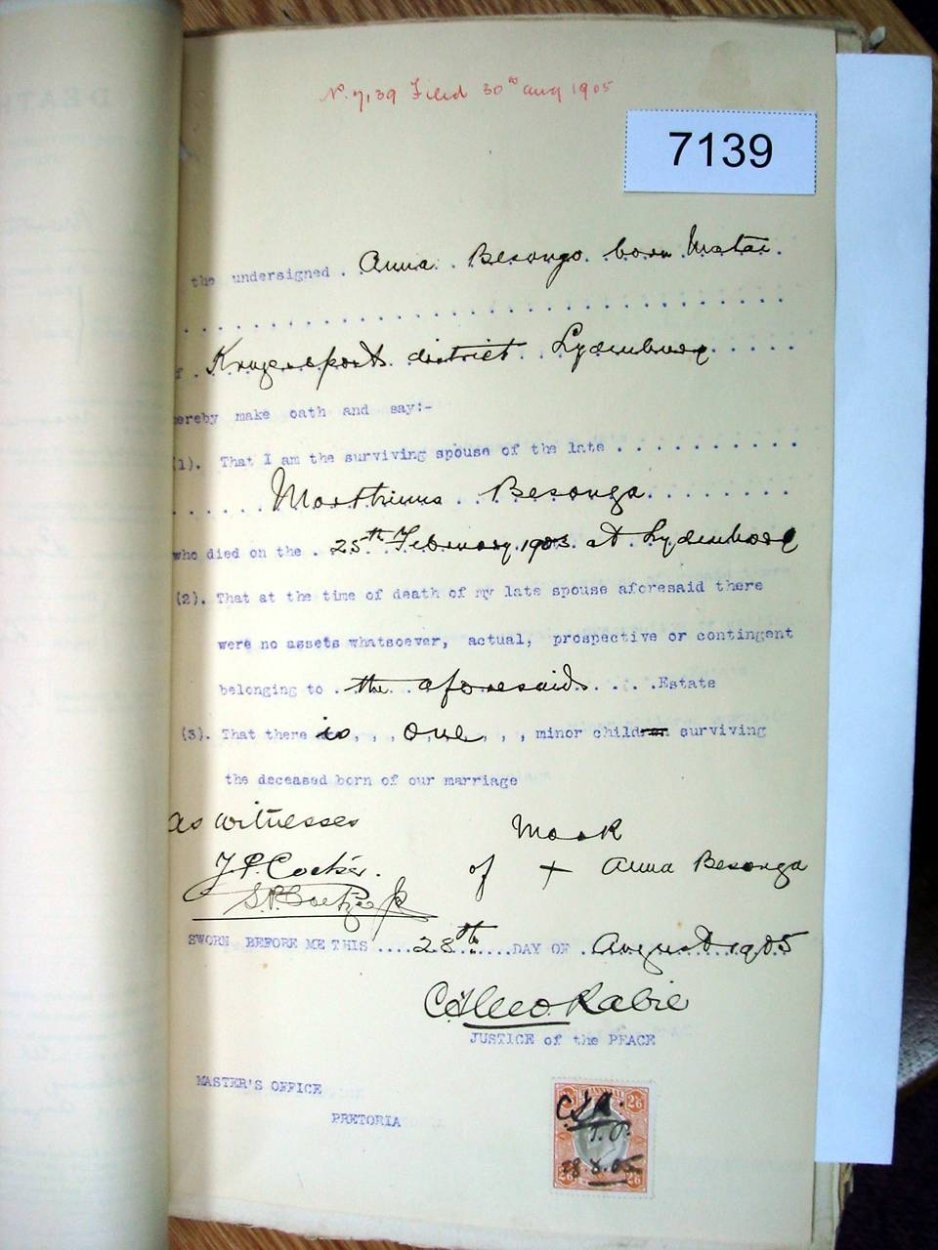 No. 7139 Filed 30th Aug 1905
7139
the undersigned . Anna . Besongo . born Matai .
Krugerspost district . Lydenburg
hereby make oath and say:-
(1). That I am the surviving spouse of the late
Marthinus . Besonga
who died on the . 25th February 1903 at Lydenburg
(2). That at the time of death of my late spouse aforesaid there
were no assets whatsoever, actual, prospective or contingent
belonging to . the aforesaid . . . . Estate
(3). That there is , , , one , , , minor child surviving
the deceased born of our marriage
as witnesses
Mark
of + Anna Besonga
SWORN BEFORE ME THIS .... 28th ..... DAY OF . August 1905
Rabie
JUSTICE of the PEACE
MASTER'S OFFICE
PRETORIA
J.P.
28.8.05
2/6 2/6